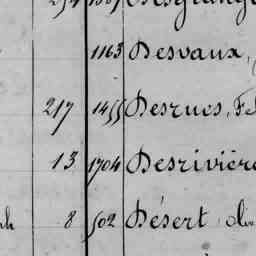 1163 Desvaux,
217 1455 Desrues, Fel
13 1704 Desrivière
8 502 Désert